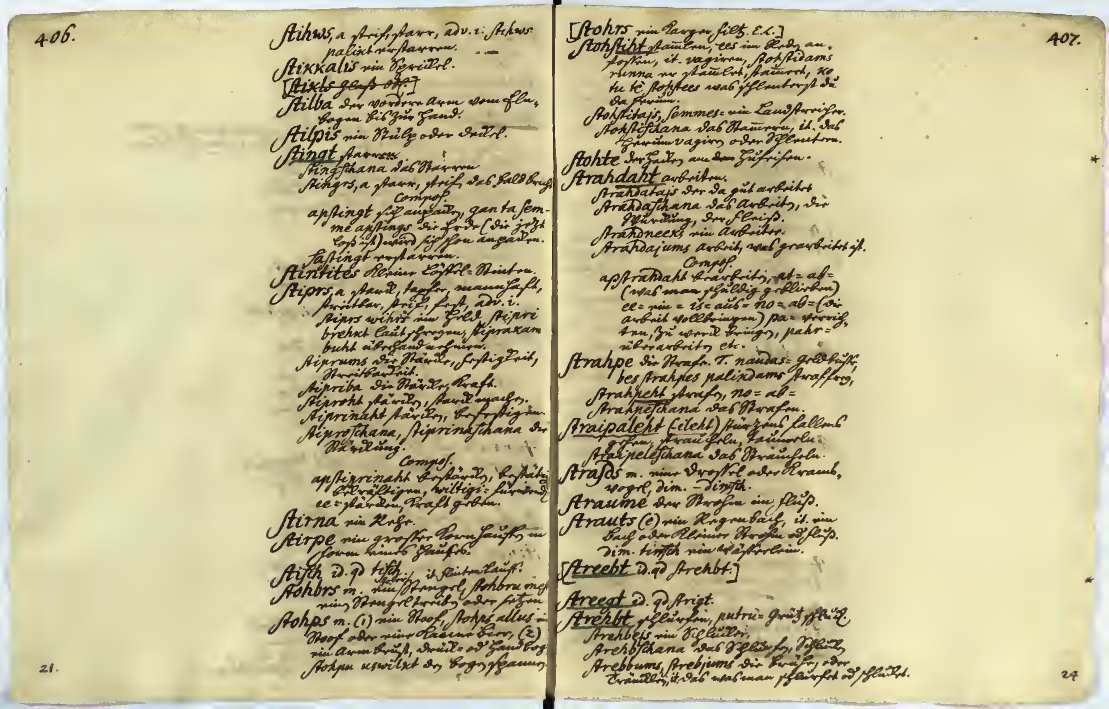 406.
Stihws, a steif, starr, adv. i: stihws
palikt erstarren.
Stikkalis ein Sprikel.
[Stikls Glaß etc.]
Stilba der vordere Arm vom Eln-
bogen bis zur Hand.
Stilpis ein Stülp oder Dekel.
Stingt starren
Stingschana das Starren
Stingrs, a starr, steif, das bald bricht
Compos.
apstingt sich anpaken, gan ta sem-
me apstings die Erde (die jetzt
loß ist) wird sich schon anpaken.
sastingt erstarren.
Stintites kleine Löffel-Stinten.
Stiprs, a stark, tapfer, mannhaft,
streitbar, steif, fest, adv. i.
stiprs wihrs ein Held, stipri
brehkt laut schreyen, stiprakam
buht überhand nehmen.
Stiprums die Stärke, Festigkeit,
Streitbarkeit.
Stipriba die Stärke, Kraft.
Stiproht stärken, stark machen.
Stiprinaht stärken, befestigen.
Stiproschana, stiprinaschana die
Stärkung.
Compos.
apstiprinaht bestärken, bestäti-
bekräftigen,
ee= stärken, Kraft geben.
Stirna ein Rehe.
Stirpe ein grosser Kornhauffen in
Form eines Hauses.
Stisch id. qd tisch, it. Flinten Lauff.
Stohbrs m. ein Stengel, stohbru mest
einen Stengel treiben oder setzen
Stohps m. (1) ein Stoof, stohps allus ein
Stoof oder eine Kanne Bier, (2)
ein Armbrust, od Handbog
stohpu uswilkt den Bogen spannen
21.
407.
[Stohrs ein Karger, filtz. E. L.]
Stohstiht stamlen, ees im Reden an-
stossen, it. vagiren, stohstidams
runna er stamlet, stamert, ko
tu te stohstees was schlenterst du
da herum.
Stohstitajs, semmes= ein Landstreicher.
Stohstischana das Stamern, it. das
herum vagiren oder Schlentern.
Stohte der Haken an den Hufeisen.
Strahdaht arbeiten.
Strahdatajs der da gut arbeitet
Strahdaschana das Arbeiten, die
Würckung, der Fleiß.
Strahdneeks ein Arbeiter.
Strahdajums Arbeit, was gearbeitet ist.
Compos.
apstrahdaht bearbeiten, at= ab=
(was man schuldig geblieben)
ee= ein= is= aus= no= ab= (die
Arbeit vollbringen) pa= verrich-
ten, zu werk bringen, pahr=
überarbeiten etc.
Strahpe die Strafe. T. naudas= Geldbusse,
bes strahpes palindams straffrey,
Strahpeht strafen, no= ab=
Strahpeschana das Strafen.
Straipaleht (eleht) stürtzens fallens
gehen, straucheln, taumeln
Straipeleschana das Straucheln.
Strasds m. eine Drossel oder Krams-
vogel, dim. -dinsch.
Straume der Strohm im Fluß.
Strauts (e) ein Regenbach, it. ein
Bach oder kleiner Strohm od Fluß.
dim. tinsch ein Wässerlein.
[Streebt id. qd strehbt.]
Streegt id. qd strigt.
Strehbt schlurfen, putru= Grütz schluk.
Strehbejs ein Schluker,
Strehbschana das Schlurfen, Schluken
Strebbums, strebjums die Brühe, oder
Tränklein, it. das was man schlurfet od schluket.
24